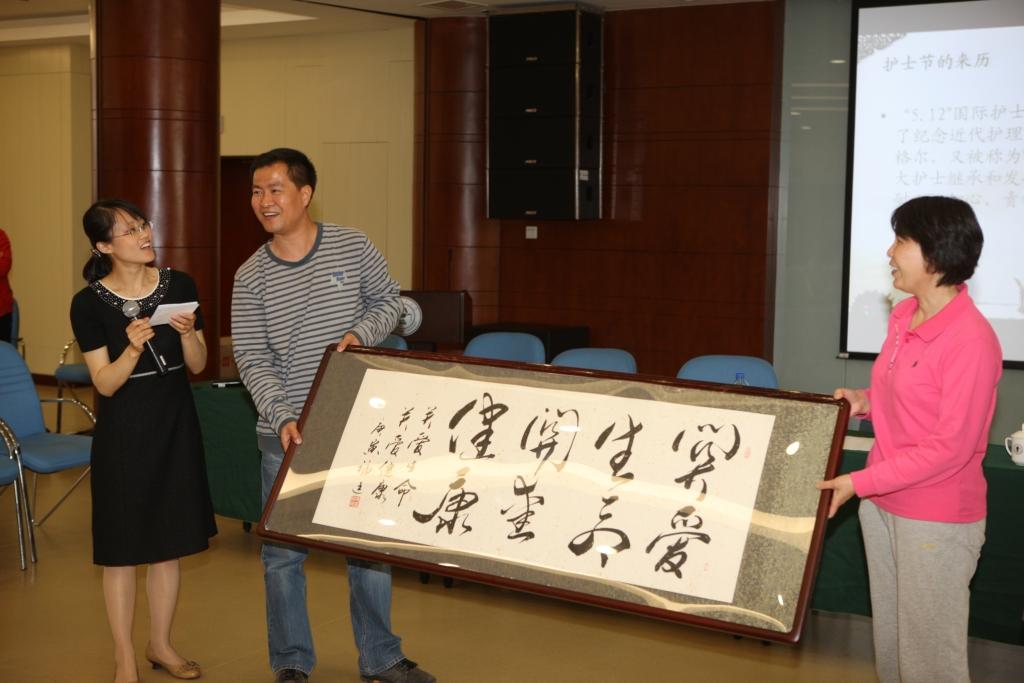 护士节的来历
• “5.12”国际护士
了纪念近代护理
格尔，又被称为
大护士继承和发
心、责
關爱
生命
關爱
健康
关爱生命
关爱健康
庚寅